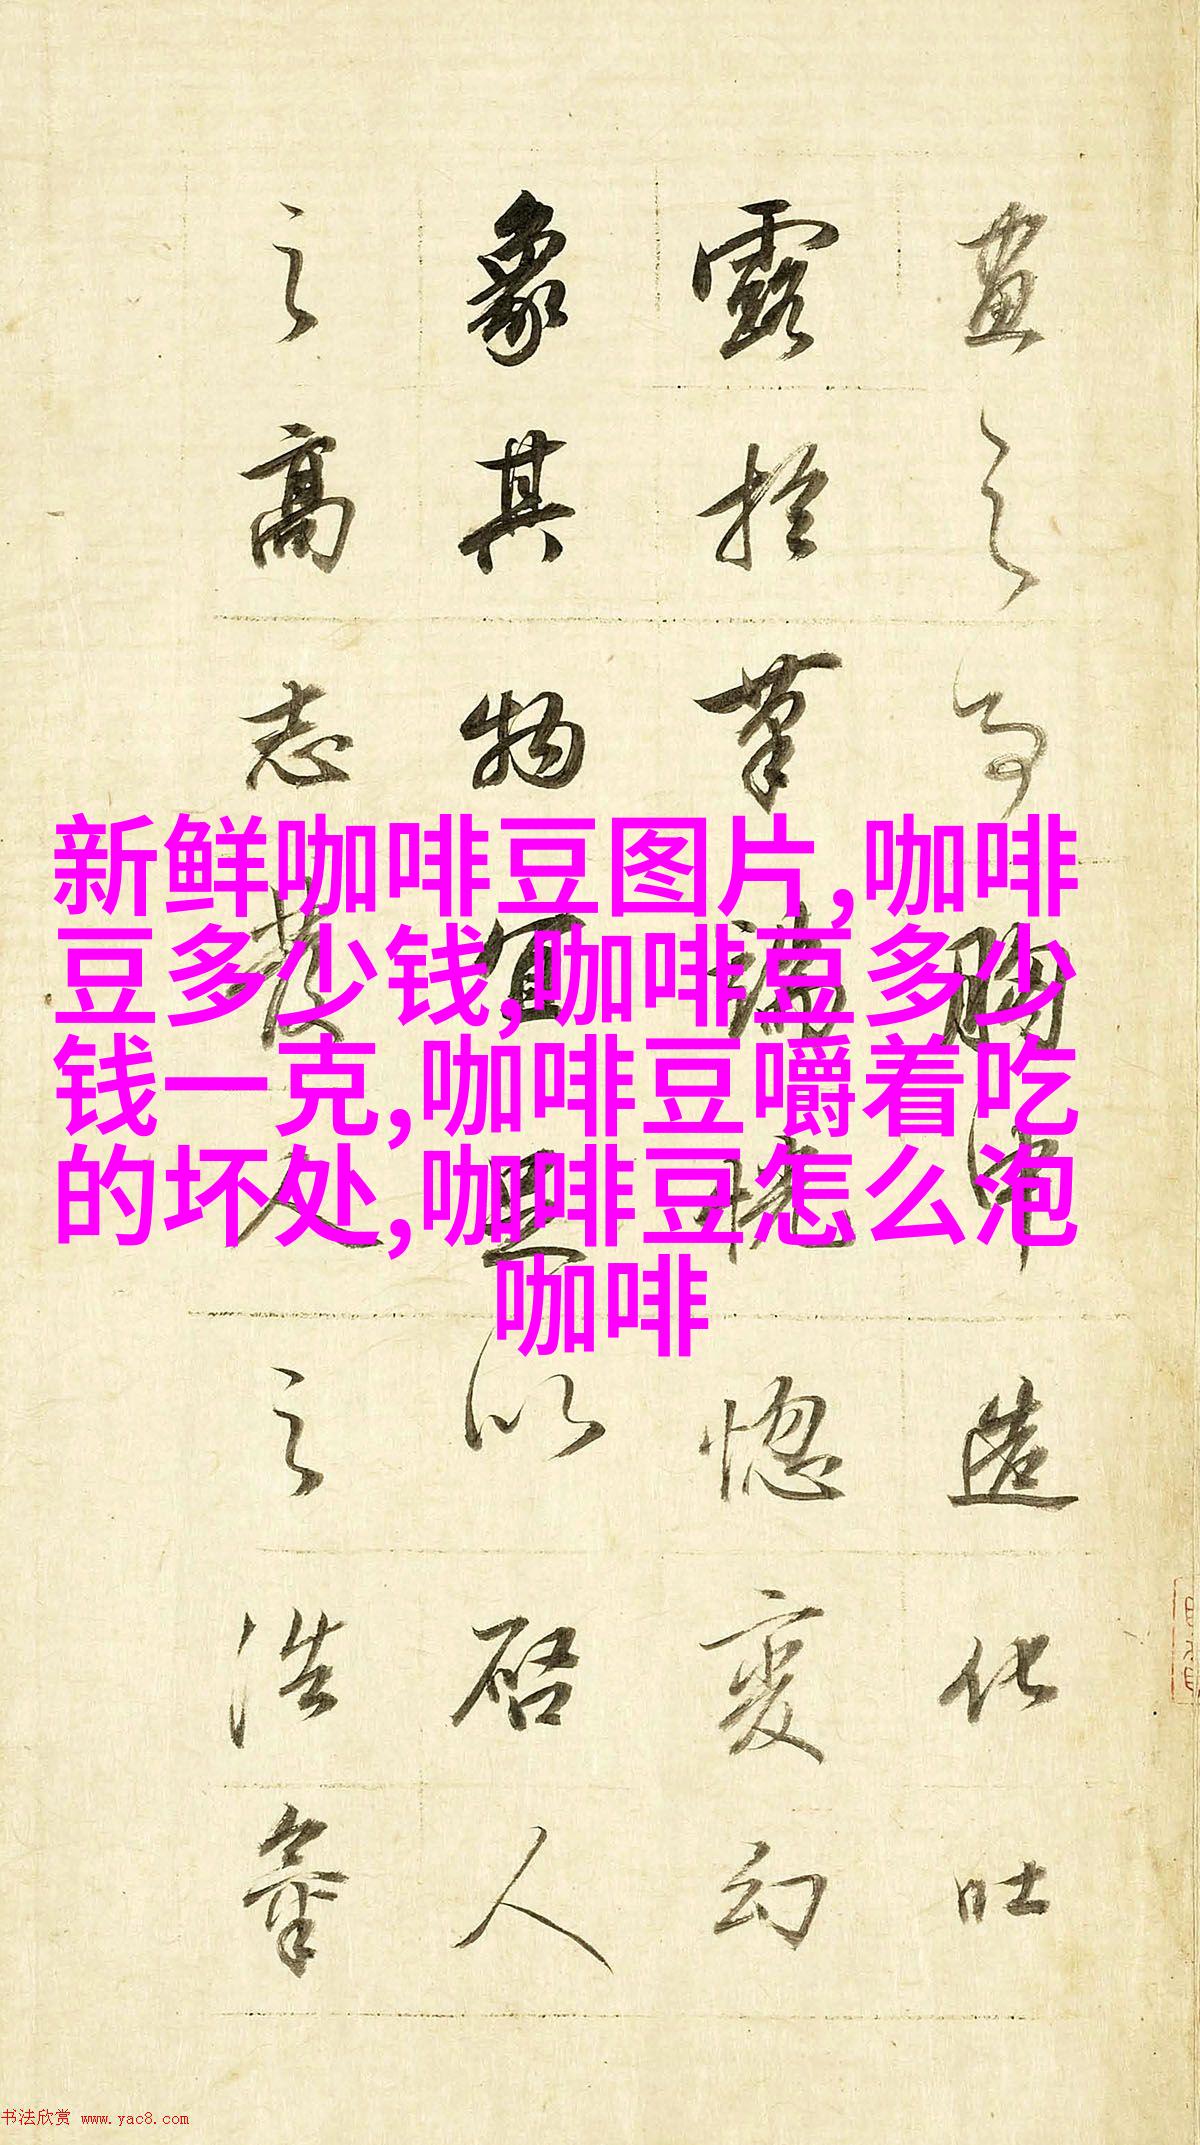 畫之為胸中造化吐
露於筆端恍惚變幻
象其物宜且以啓人
之高志發人之浩氣
新鲜咖啡豆图片,咖啡
豆多少钱,咖啡豆多少
钱一克,咖啡豆嚼着吃
的坏处,咖啡豆怎么泡
咖啡
书法欣赏 www.yac8.com